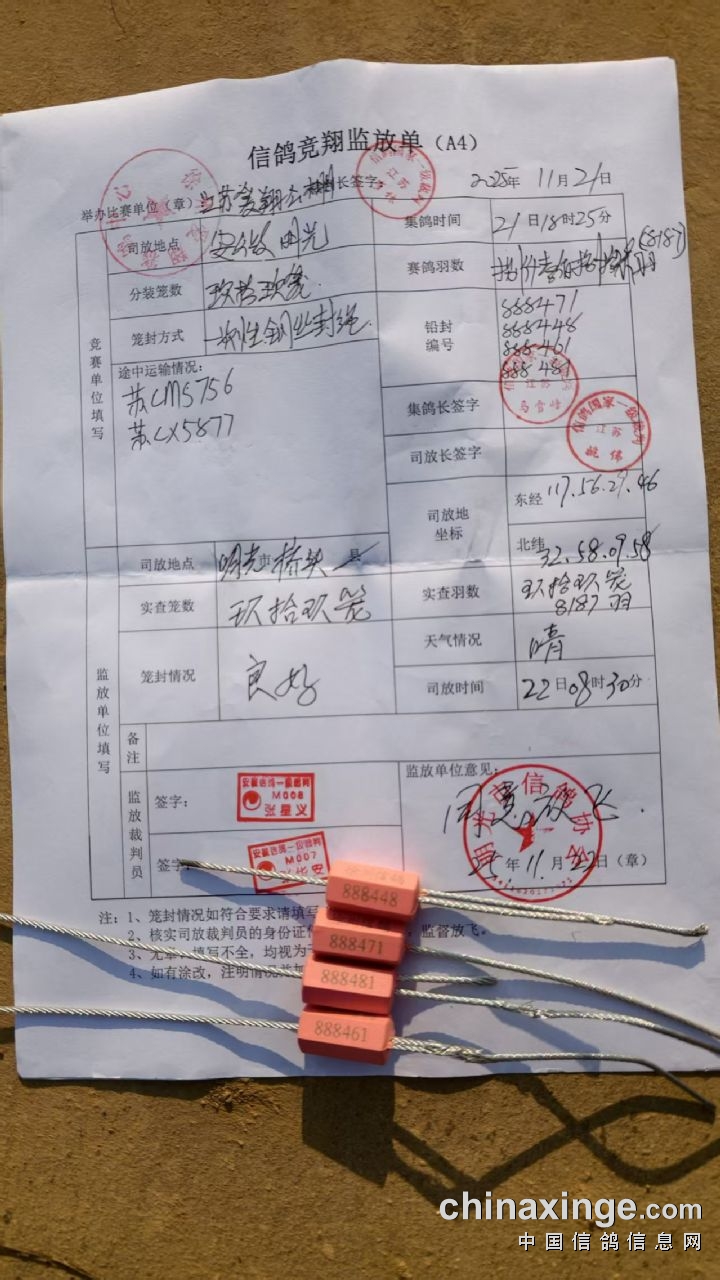 信鸽竞翔监放单（A4）
举办比赛单位（章） 长签字： 2025年 11月21日
司放地点 安徽 明光 集鸽时间 21日18时25分
分装笼数 玖拾玖笼 赛鸽羽数 (8187)
笼封方式 一次性钢丝封绳 铅封编号 888471
888448
888461
888481
竞赛单位填写
途中运输情况：
苏CM5756
苏CX5877
集鸽长签字
司放长签字
信鸽国家一级裁判
江苏
司放地坐标 东经 117.56.29.46
北纬 32.58.09.58
监放单位填写
司放地点 明光市桥头 县
实查笼数 玖拾玖笼 实查羽数 玖拾玖笼
8187羽
笼封情况 良好 天气情况 晴
司放时间 22日08时30分
备注
监放裁判员
签字： 安徽信鸽一级裁判
M008
张星义
签字： M007
监放单位意见：
同意放飞.
25年11月22日（章）
注：1、笼封情况如符合要求请填写
2、核实司放裁判员的身份证 ，监督放飞。
3、无章、填写不全，均视为
4、如有涂改，注明情况并加
888448
888471
888481
888461
chinaxinge.com
中国信鸽信息网